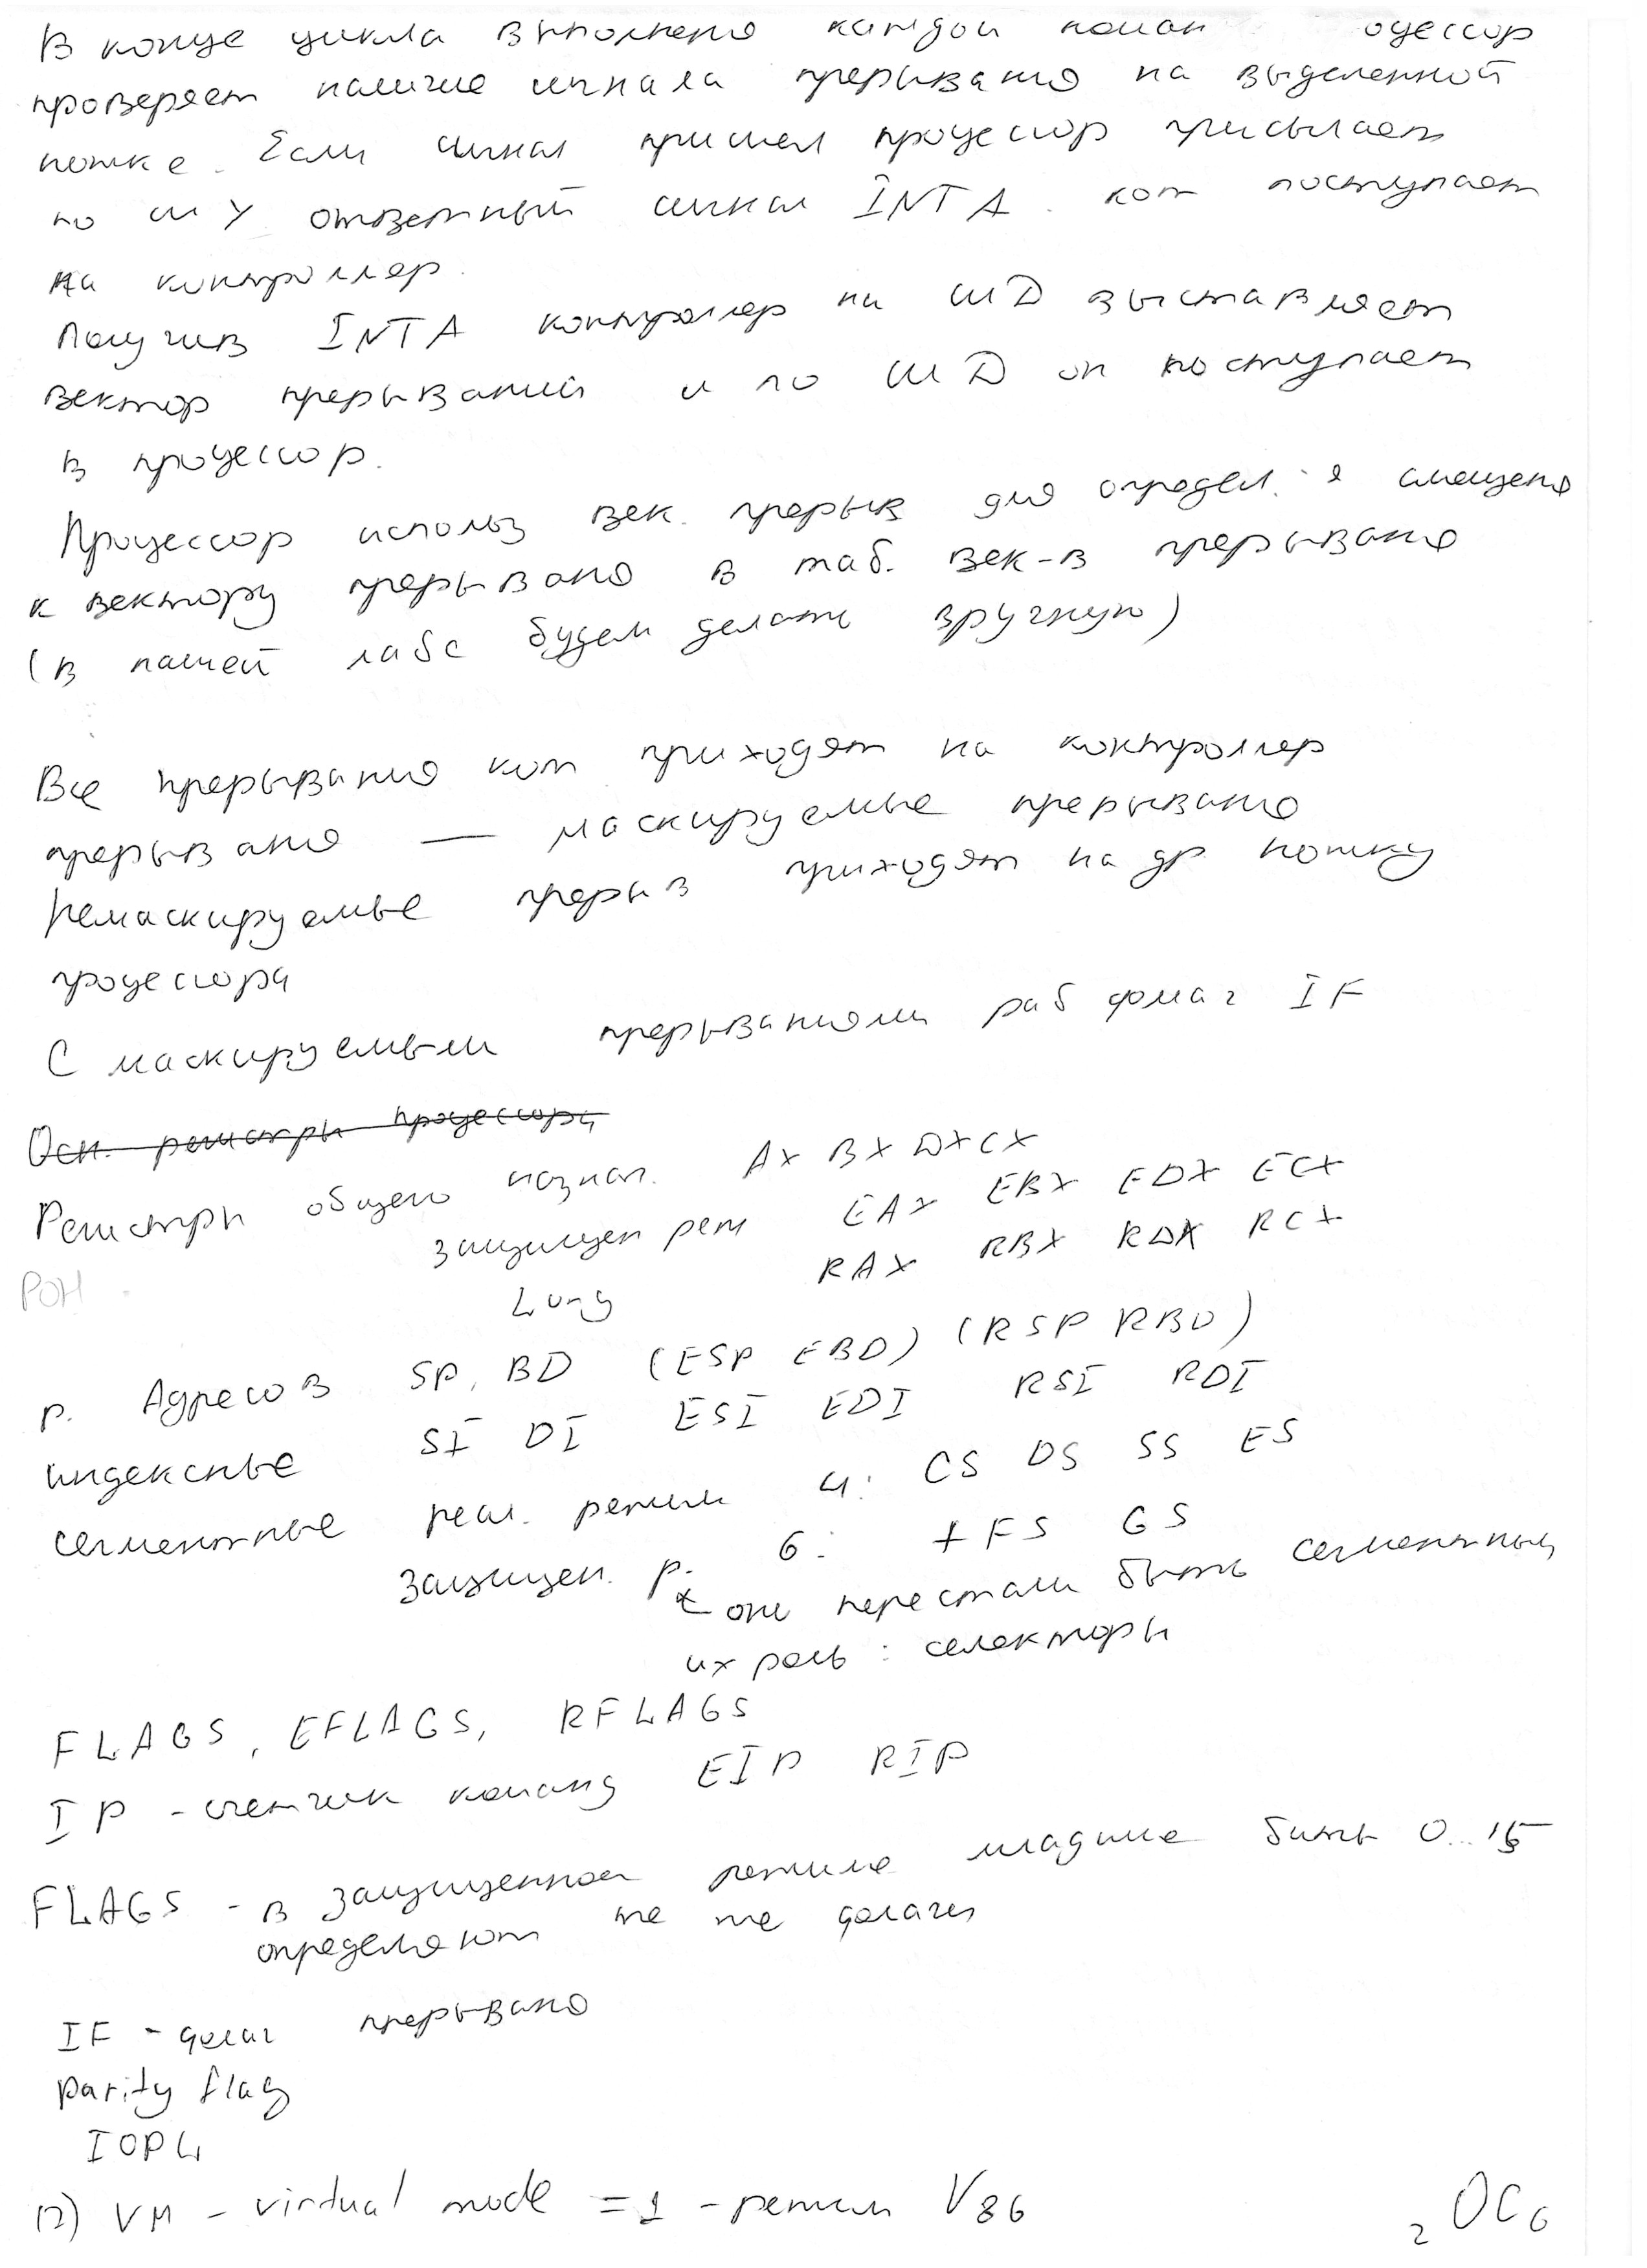 В конце цикла выполнения каждой коман оцессор
проверяет наличие сигнала прерывания на выделенной
ножке. Если сигнал пришел процессор присылает
по ШУ ответный сигнал INTA. кот поступает
на контроллер.
Получив INTA контроллер на ШД выставляет
вектор прерываний и по ШД он поступает
в процессор.
Процессор использ век. прерыв для определ. я смещения
к вектору прерывания в таб. век-в прерывания
(в нашей лабе будем делать вручную)
Все прерывания кот приходят на контроллер
прерывания — маскируемые прерывания
Немаскируемые прерыв приходят на др ножку
процессора
С маскируемыми прерываниями раб флаг IF
Осн. регистры процессора
Регистры общего назнач. AX BX DX CX
защищен реж EAX EBX EDX ECX
РОН
Long RAX RBX RDX RCX
р. Адресов SP, BD (ESP EBD) (RSP RBD)
индексные SI DI ESI EDI RSI RDI
сегментные реал. режим 4: CS DS SS ES
защищен. р. 6: + FS GS
они перестали быть сегментными
их роль: селекторы
FLAGS, EFLAGS, RFLAGS
IP - счетчик команд EIP RIP
FLAGS - в защищенном режиме младшие биты 0..15
определяют те же флаги
IF - флаг прерывания
parity flag
IOPL
17) VM - virtual mode = 1 - режим V86
2 ОС 6